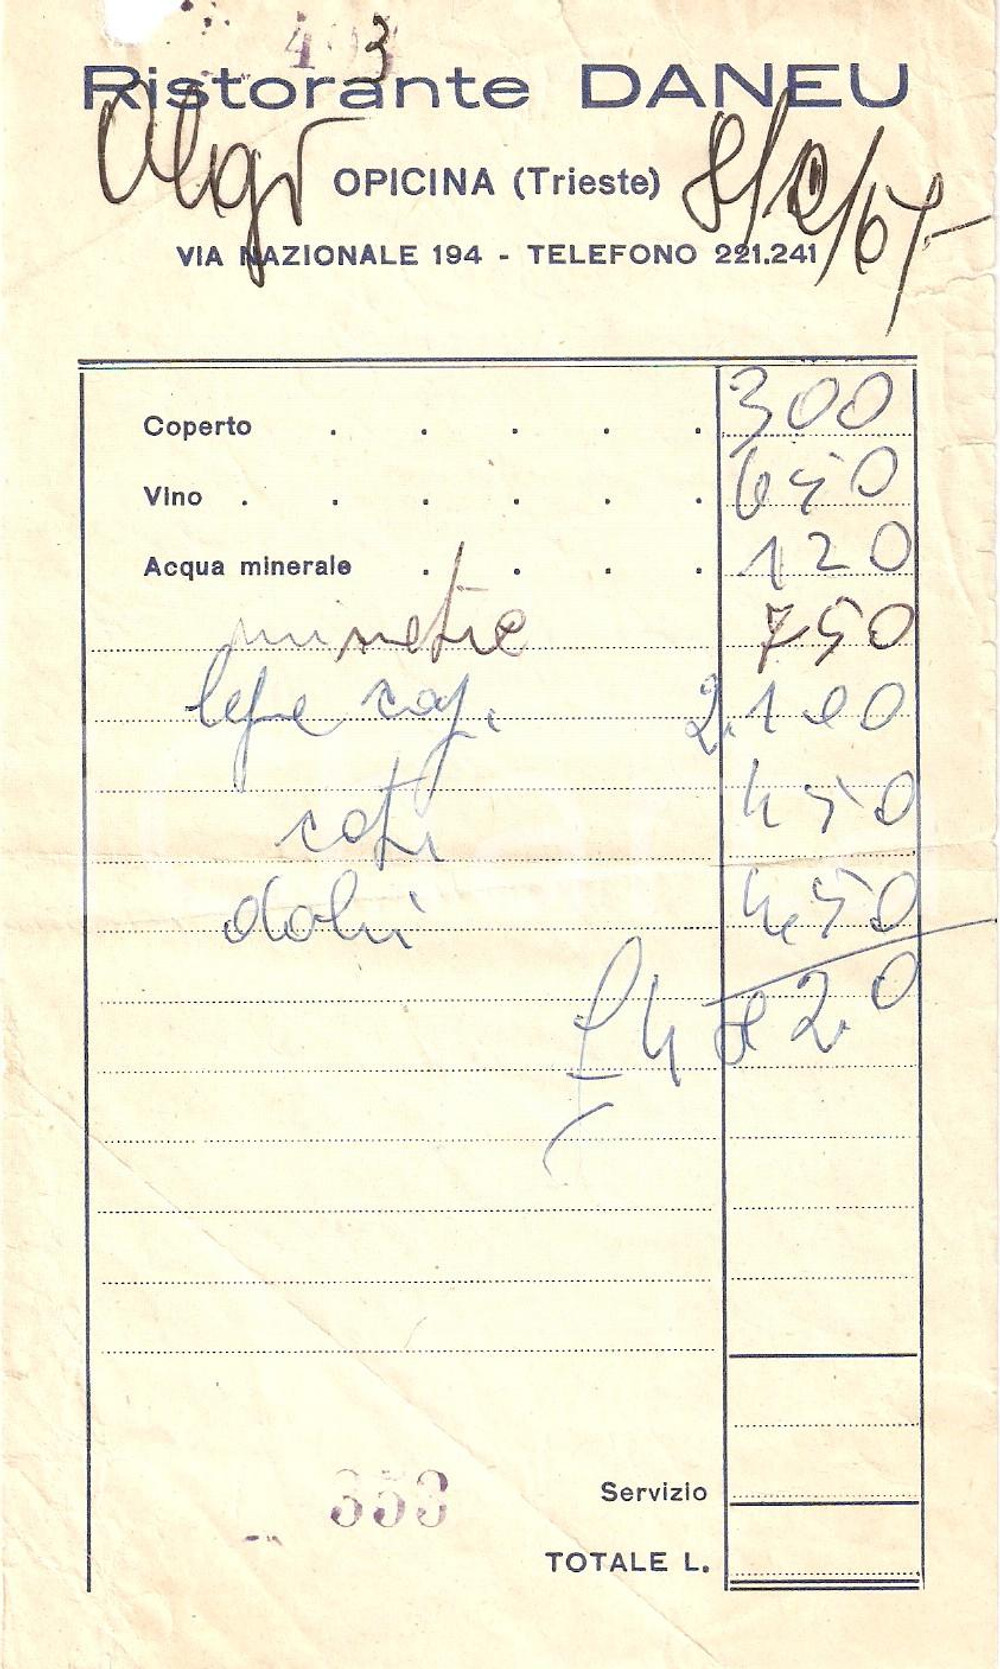 Ristorante DANEU
OPICINA (Trieste)
8/2/67-
VIA NAZIONALE 194 - TELEFONO 221.241
Coperto . . . . . 300
Vino . . . . . . 650
Acqua minerale . . . . 120
750
2.100
450
dolci 450
£ 4820
353
Servizio
TOTALE L.